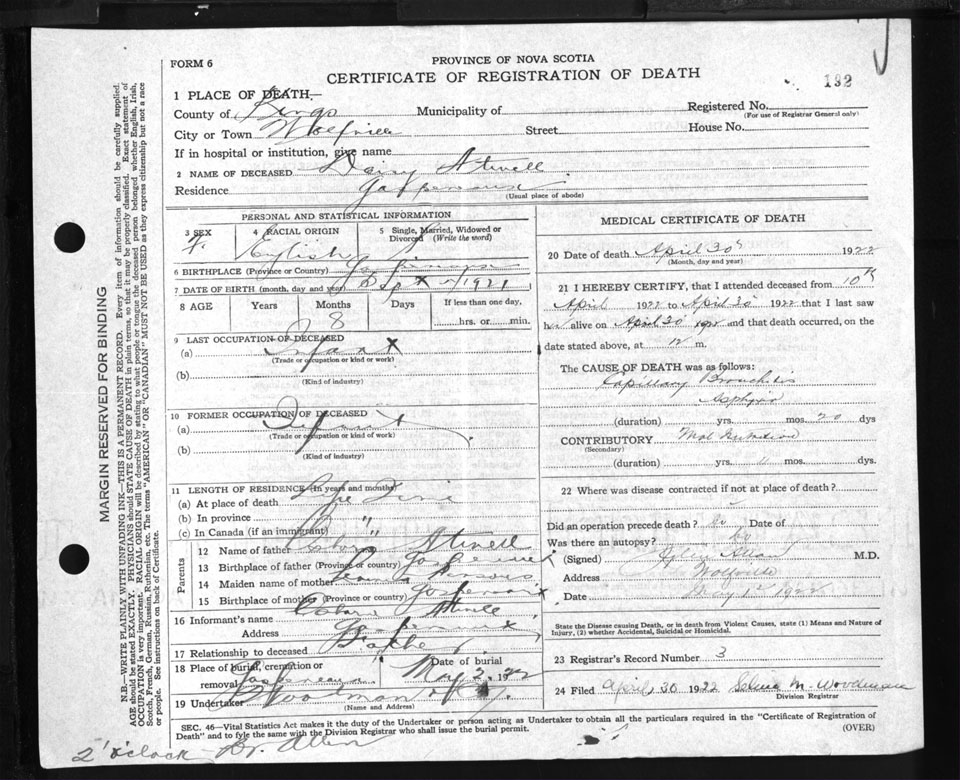 FORM 6
PROVINCE OF NOVA SCOTIA
CERTIFICATE OF REGISTRATION OF DEATH
192
1 PLACE OF DEATH—
County of Kings Municipality of Registered No.
(For use of Registrar General only)
City or Town Wolfville Street House No.
If in hospital or institution, give name
2 NAME OF DECEASED Daisy Atwell
Residence Gaspereaux
(Usual place of abode)
PERSONAL AND STATISTICAL INFORMATION
3 SEX 4 RACIAL ORIGIN 5 Single, Married, Widowed or Divorced (Write the word)
F. English S
6 BIRTHPLACE (Province or Country)
7 DATE OF BIRTH (month, day, and year) 1921
8 AGE Years Months Days If less than one day,
8 hrs. or min.
9 LAST OCCUPATION OF DECEASED
(a) Infant X
(Trade or occupation or kind or work)
(b)
(Kind of industry)
10 FORMER OCCUPATION OF DECEASED
(a) Infant
(Trade or occupation or kind of work)
(b)
(Kind of industry)
11 LENGTH OF RESIDENCE (In years and months)
(a) At place of death Life Time
(b) In province "
(c) In Canada (if an immigrant) "
Parents
12 Name of father Atwell
13 Birthplace of father (Province or country)
14 Maiden name of mother
15 Birthplace of mother (Province or country)
16 Informant's name
Address
17 Relationship to deceased Father
18 Place of burial, cremation or removal Date of burial
Gaspereau May 2. 1922
19 Undertaker Woodman
(Name and Address)
MEDICAL CERTIFICATE OF DEATH
20 Date of death April 30 1922
(Month, day and year)
21 I HEREBY CERTIFY, that I attended deceased from 10th
April 1922 to April 30 1922 that I last saw
her alive on April 30 1922 and that death occurred, on
date stated above, at 12 m.
The CAUSE OF DEATH was as follows:
Capillary Bronchitis
(duration) yrs. mos. 20 dys
CONTRIBUTORY Mal Nutrition
(Secondary)
(duration) yrs. mos. dys.
22 Where was disease contracted if not at place of death?
Did an operation precede death? No Date of
Was there an autopsy? No
(Signed) M.D.
Address Wolfville
May 1 1922
State the Disease causing Death, or in death from Violent Causes, state (1) Means and Nature of
Injury, (2) whether Accidental, Suicidal or Homicidal.
23 Registrar's Record Number 3
24 Filed April, 30 1922 M. Woodman
Division Registrar
SEC. 46—Vital Statistics Act makes it the duty of the Undertaker or person acting as Undertaker to obtain all the particulars required in the "Certificate of Registration of
Death" and to fyle the same with the Division Registrar who shall issue the burial permit.
(OVER)
2 o'clock Dr. Allen
MARGIN RESERVED FOR BINDING
N.B.—WRITE PLAINLY WITH UNFADING INK—THIS IS A PERMANENT RECORD. Every item of information should be carefully supplied.
AGE should be stated EXACTLY. PHYSICIANS should STATE CAUSE OF DEATH in plain terms, so that it may be properly classified. Exact statement of
OCCUPATION is very important. RACIAL ORIGIN will be described by stating to what people or tongue the deceased person belonged whether English, Irish,
Scotch, French, German, Russian, Ruthenian, etc. The terms "AMERICAN" OR "CANADIAN" MUST NOT BE USED as they express citizenship but not a race
or people. See instructions on back of Certificate.